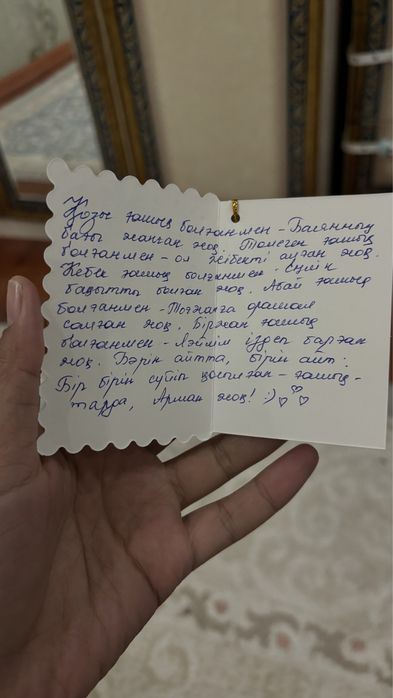 Қозы ғашық болғанмен - Баянның
бағы жанған жоқ. Төлеген ғашық
болғанмен - ол Жібекті алған жоқ.
Кебек ғашық болғанмен, еңлік
бақытты болған жоқ. Абай ғашық
болғанмен - Тоғжанға орамал
салған жоқ. Біржан ғашық
болғанмен - Ләйлім іздеп барған
жоқ. Бәрін айтпа, бірін айт:
Бір бірін сүйіп қосылған - ғашық -
тарда, Арман жоқ! :)